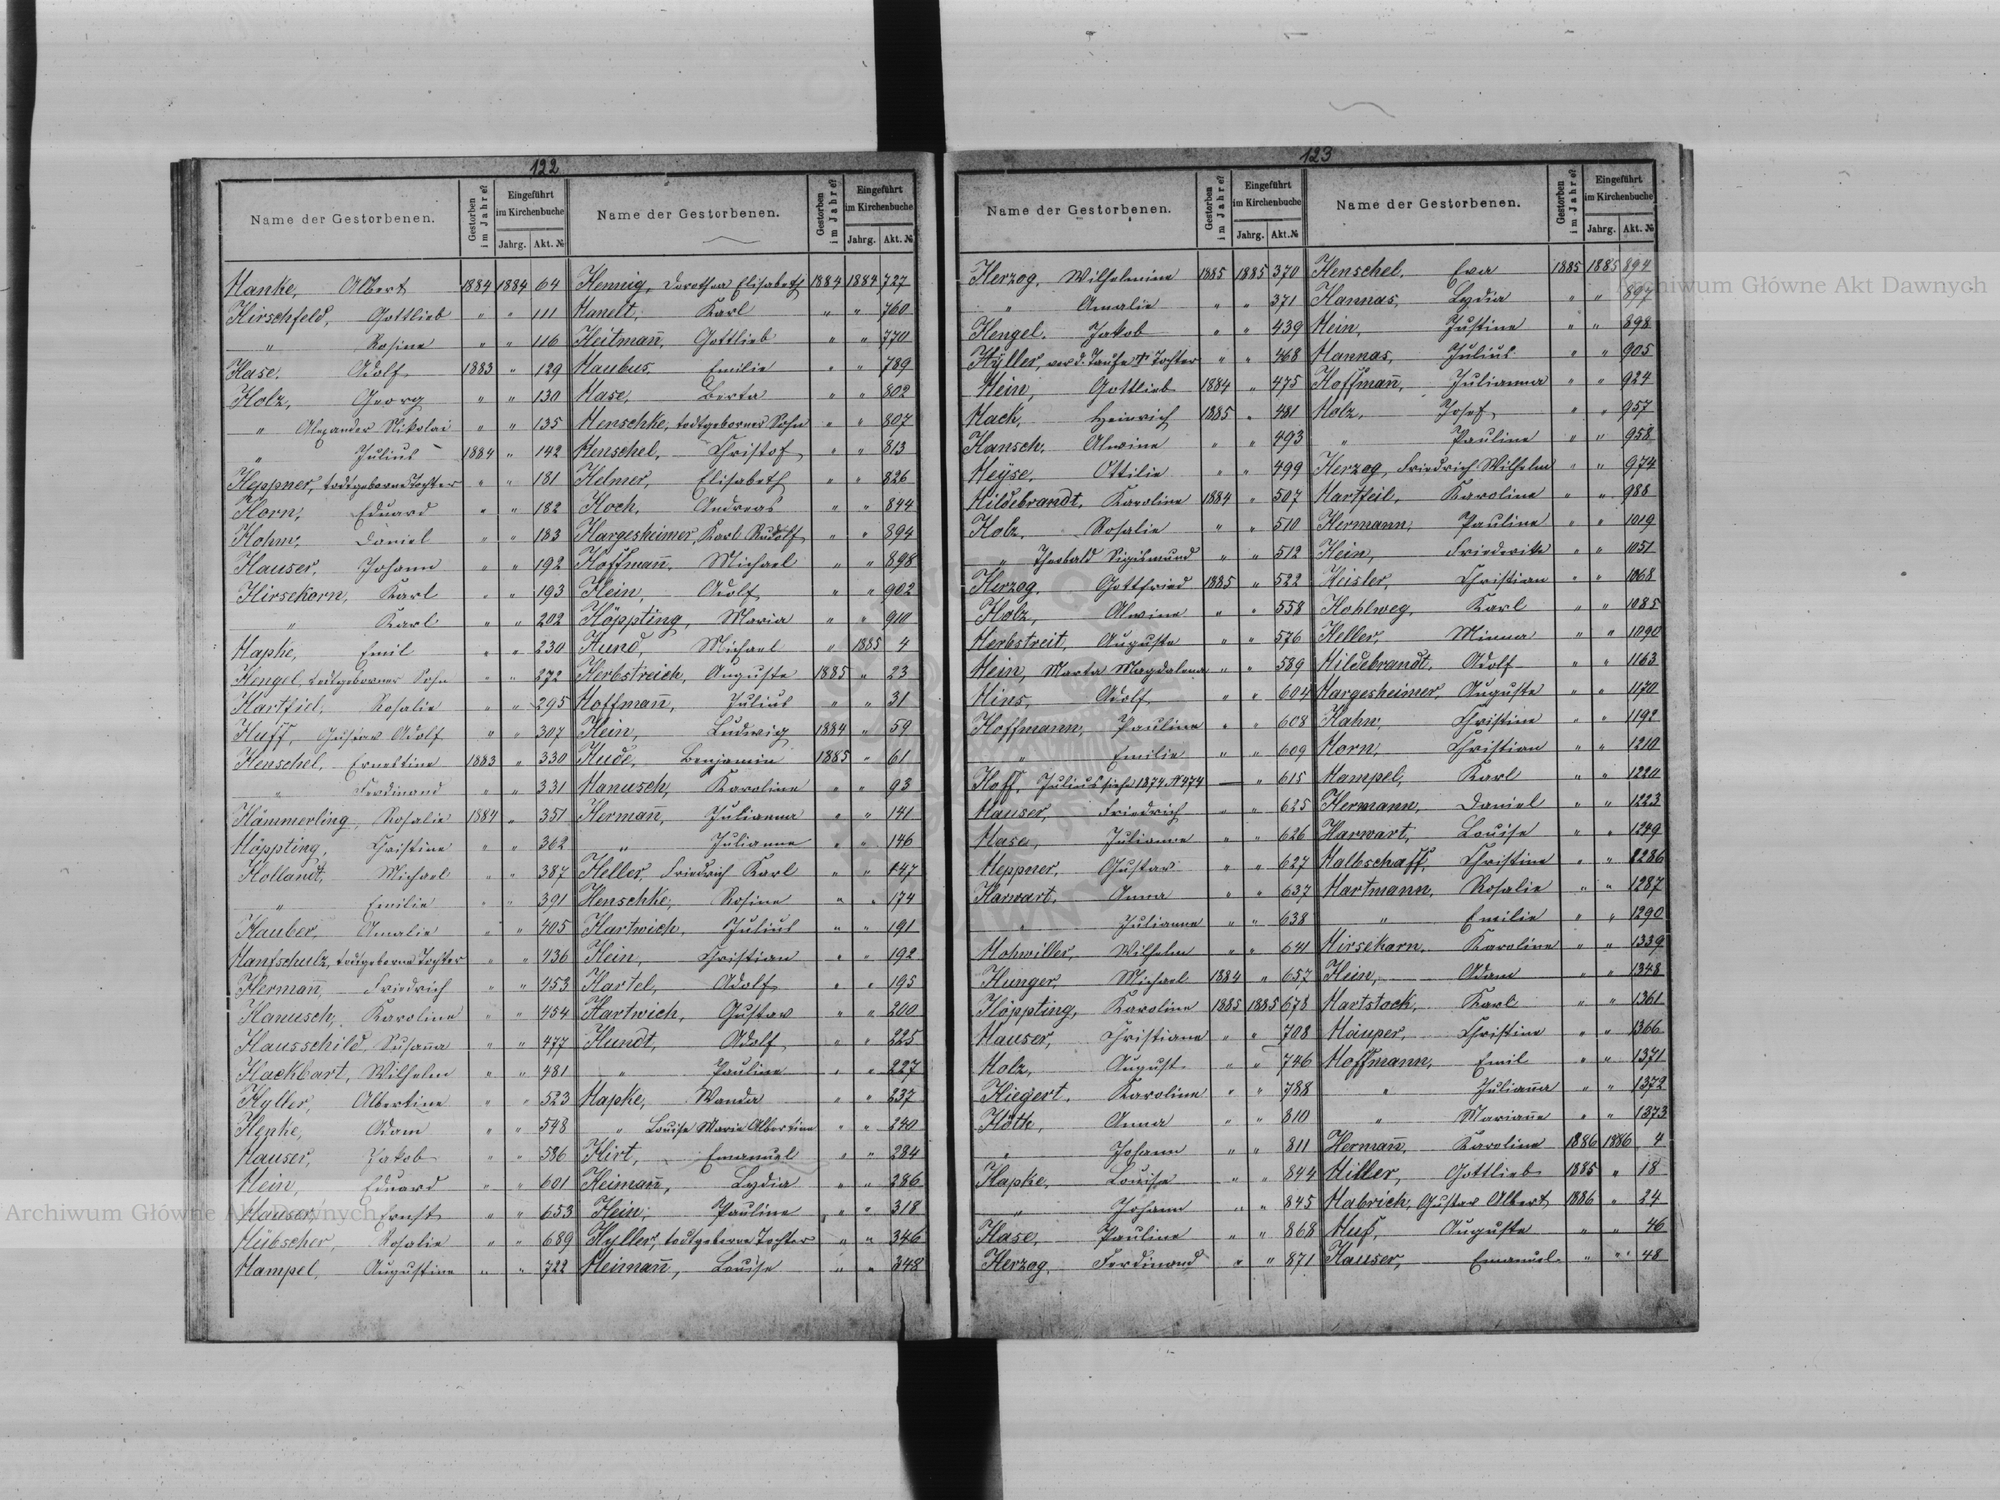 122
Name der Gestorbenen. Gestorben im Jahre? Eingeführt im Kirchenbuche Jahrg. Akt. №
Hanke, Albert 1884 1884 64
Hirschfeld, Gottlieb " " 111
" Rosine " " 116
Hase, Adolf 1883 " 129
Holz, Georg " " 130
" Alexander Nikolai " " 135
" Julius 1884 " 142
Heppner, todtgeborene Tochter " " 181
Horn, Eduard " " 182
Hohm, Daniel " " 183
Hauser, Johann " " 192
Hirsekorn, Karl " " 193
" Karl " " 202
Hapke, Emil " " 230
Hengel, todtgeborner Sohn " " 272
Hartfiel, Rosalie " " 295
Huff, Gustav Adolf " " 307
Henschel, Ernestine 1883 " 330
" Ferdinand " " 331
Hämmerling, Rosalie 1884 " 351
Höppting, Christine " " 362
Hollandt, Michael " " 387
" Emilie " " 391
Hauber, Amalie " " 405
Hanfschulz, todtgeborne Tochter " " 436
Hermañ, Friedrich " " 453
Hanusch, Karoline " " 454
Hausschild, Susaña " " 477
Hackbart, Wilhelm " " 481
Hyller, Albertine " " 523
Hepke, Adam " " 548
Hauser, Jakob " " 586
Hein, Eduard " " 601
Hauser, Ernst " " 653
Hübscher, Rosalie " " 689
Hampel, Augustine " " 722
Name der Gestorbenen. Gestorben im Jahre? Eingeführt im Kirchenbuche Jahrg. Akt. №
Hennig, Dorothea Elisabeth 1884 1884 727
Hanelt, Karl " " 760
Heitmañ, Gottlieb " " 770
Haubus, Emilie " " 789
Hase, Berta " " 802
Henschke, todtgeborner Sohn " " 807
Henschel, Christof " " 813
Helmer, Elisabeth " " 826
Hoch, Andreas " " 844
Hargesheimer, Karl Rudolf " " 894
Hoffmañ, Michael " " 898
Hein, Adolf " " 902
Höppting, Maria " " 910
Hund, Michael " 1885 4
Herbstreich, Auguste 1885 " 23
Hoffmañ, Julius " " 31
Hein, Ludwig 1884 " 59
Hude, Benjamin 1885 " 61
Hanusch, Karoline " " 93
Hermañ, Julianna " " 141
" Julianne " " 146
Heller, Friedrich Karl " " 147
Henschke, Rosine " " 174
Hartwich, Julius " " 191
Hein, Christian " " 192
Hartel, Adolf " " 195
Hartwich, Gustav " " 200
Hundt, Adolf " " 225
" Pauline " " 227
Hapke, Wanda " " 237
" Louise Marie Albertine " " 240
Hirt, Emanuel " " 284
Heimañ, Lydia " " 286
Hein, Pauline " " 318
Hyller, todtgeborne Tochter " " 346
Heimañ, Louise " " 348
123
Name der Gestorbenen. Gestorben im Jahre? Eingeführt im Kirchenbuche Jahrg. Akt. №
Herzog, Wilhelmine 1885 1885 370
" Amalie " " 371
Hengel, Jakob " " 439
Hyller, vor d. Taufe † Tochter " " 468
Hein, Gottlieb 1884 " 475
Hack, Heinrich 1885 " 481
Hansch, Alwine " " 493
Heyse, Ottilie " " 499
Hildebrandt, Karoline 1884 " 507
Holz, Rosalie " " 510
" Theobald Sigismund " " 512
Herzog, Gottfried 1885 " 522
Holz, Alwine " " 558
Herbstreit, Auguste " " 576
Hein, Marta Magdalena " " 589
Hins, Adolf " " 604
Hoffmann, Pauline " " 608
" Emilie " " 609
Hoff, Julius siehe 1874 № 474 — " 615
Hauser, Friedrich " " 625
Hase, Julianne " " 626
Heppner, Gustav " " 627
Harwart, Anna " " 637
" Julianne " " 638
Hohwiller, Wilhelm " " 641
Hunger, Michael 1884 " 657
Höppting, Karoline 1885 1885 678
Hauser, Christiane " " 708
Holz, August " " 746
Hiegert, Karoline " " 788
Höth, Anna " " 810
" Johann " " 811
Hapke, Louise " " 844
" Johann " " 845
Hase, Pauline " " 868
Herzog, Ferdinand " " 871
Name der Gestorbenen. Gestorben im Jahre? Eingeführt im Kirchenbuche Jahrg. Akt. №
Henschel, Eva 1885 1885 894
Hannas, Lydia " " 897
Hein, Justine " " 898
Hannas, Julius " " 905
Hoffmañ, Julianna " " 924
Holz, Josef " " 957
" Pauline " " 958
Herzog, Friedrich Wilhelm " " 974
Hartfeil, Karoline " " 988
Hermann, Pauline " " 1019
Hein, Friederike " " 1051
Heisler, Christian " " 1068
Hohlweg, Karl " " 1085
Heller, Minna " " 1090
Hildebrandt, Adolf " " 1163
Hargesheimer, Auguste " " 1170
Hahn, Christine " " 1192
Horn, Christian " " 1210
Hampel, Karl " " 1220
Hermann, Daniel " " 1223
Harwart, Louise " " 1249
Halbschaff, Christine " " 1286
Hartmann, Rosalie " " 1287
" Emilie " " 1290
Hirsekorn, Karoline " " 1339
Hein, Adam " " 1348
Hartstock, Karl " " 1361
Häuper, Christine " " 1366
Hoffmann, Emil " " 1371
" Juliaña " " 1372
" Mariañe " " 1373
Hermañ, Karoline 1886 1886 4
Hiller, Gottlieb 1885 " 18
Habrich, Gustav Albert 1886 " 24
Huf, Auguste " " 46
Hauser, Emanuel " " 48
Archiwum Główne Akt Dawnych
Archiwum Główne Akt Dawnych